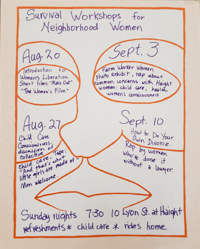 Survival Workshops for
Neighborhood Women
Aug. 20
Introduction to
Women's Liberation.
Short films "Make Out"
"The Women's Film"
Sept. 3
Farm Worker Women
Photo exhibit, rap about
common concerns with Haight
women: child care, health,
women's consciousness
Aug. 27
Child Care
Consciousness,
discussion of
collective
child care. Tape:
"And that's what
little girls are made of"
Men welcome.
Sept. 10
How to Do Your
Own Divorce.
Rap by women
who've done it
without a lawyer.
Sunday nights 7:30 10 Lyon St. at Haight
refreshments * child care * rides home